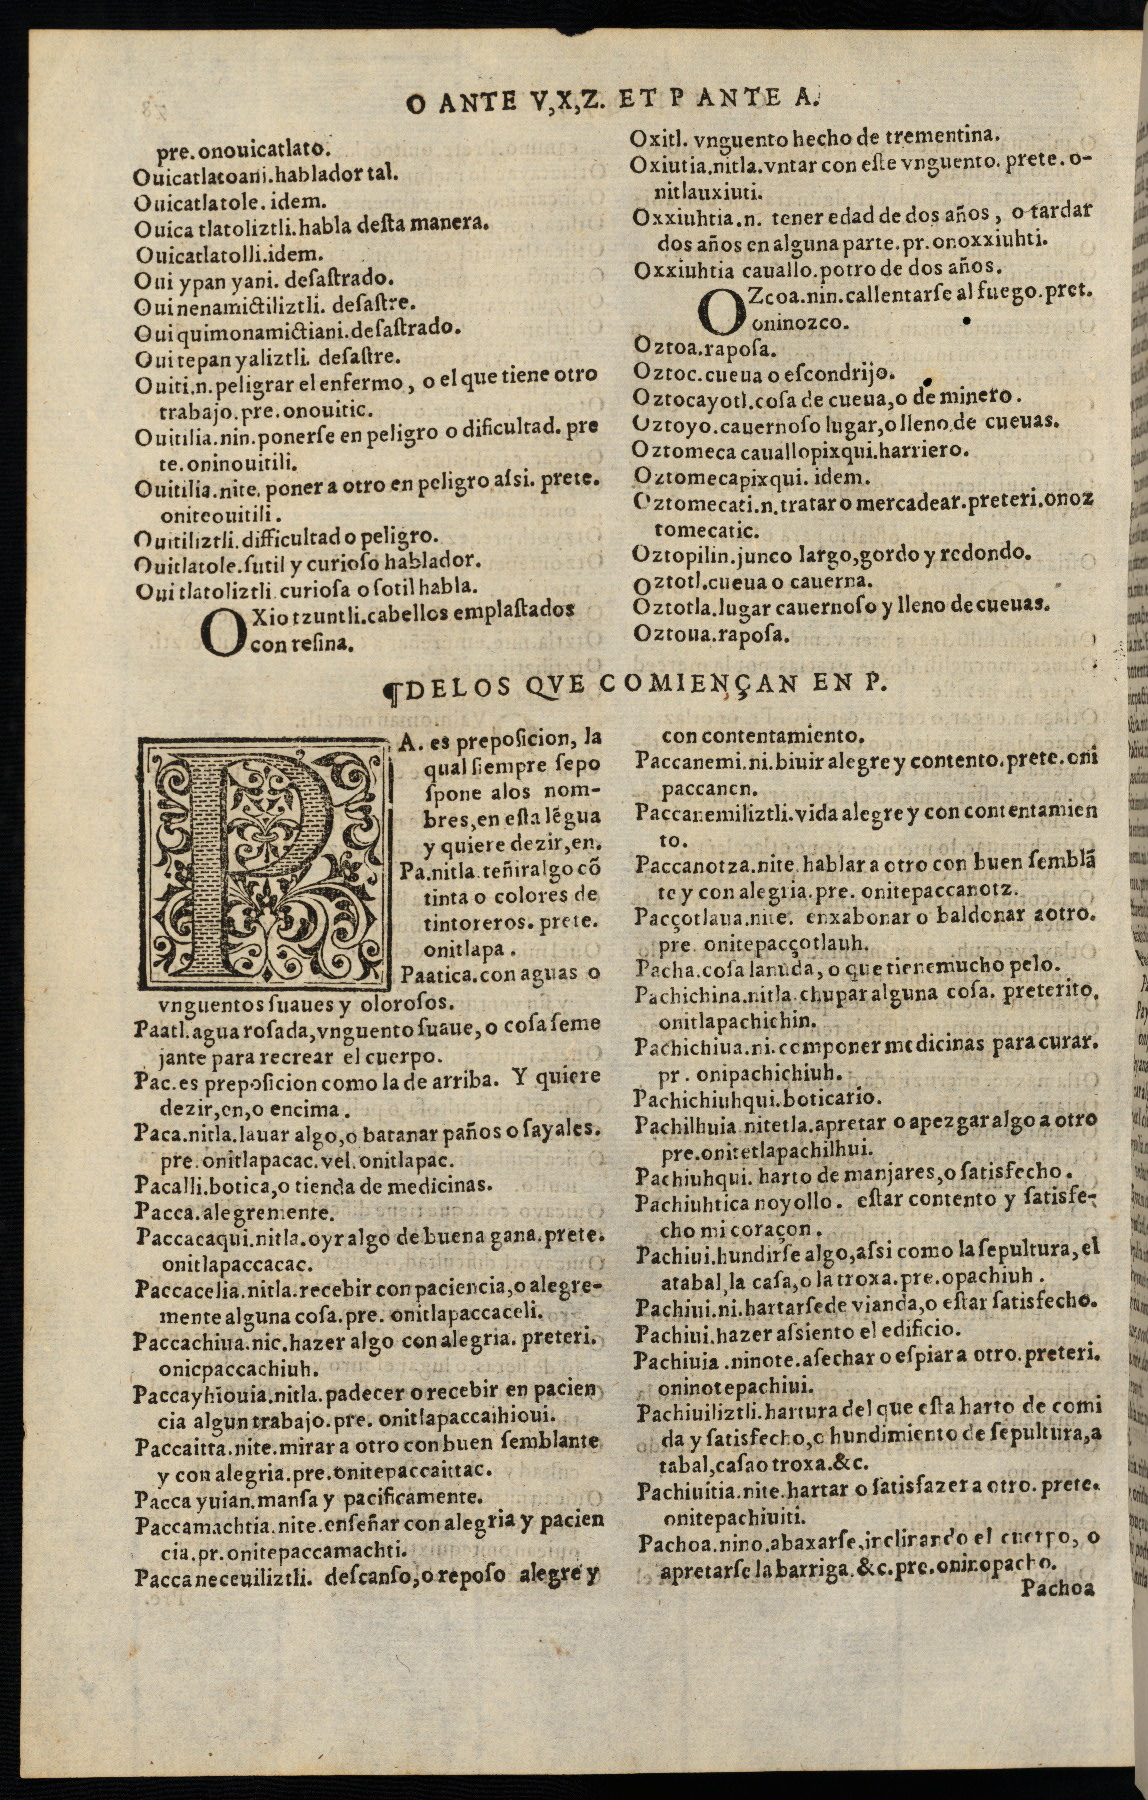 O ANTE V,X,Z. ET P ANTE A.
pre. onouicatlato.
Ouicatlatoani. hablador tal.
Ouicatlatole. idem.
Ouica tlatoliztli. habla deſta manera.
Ouicatlatolli. idem.
Oui ypan yani. deſaſtrado.
Oui nenamictiliztli. deſaſtre.
Oui quimonamictiani. deſaſtrado.
Oui tepan yaliztli. deſaſtre.
Ouiti. n. peligrar el enfermo, o el que tiene otro
trabajo. pre. onouitic.
Ouitilia. nin. ponerſe en peligro o dificultad. pre
te. oninouitili.
Ouitilia. nite. poner a otro en peligro aſsi. prete.
oniteouitili.
Ouitiliztli. difficultad o peligro.
Ouitlatole. ſutil y curioſo hablador.
Oui tlatoliztli. curioſa o ſotil habla.
OXio tzuntli. cabellos emplaſtados
con reſina.
Oxitl. vnguento hecho de trementina.
Oxiutia. nitla. vntar con eſte vnguento. prete. o-
nitlauxiuti.
Oxxiuhtia. n. tener edad de dos años, o tardar
dos años en alguna parte. pr. onoxxiuhti.
Oxxiuhtia cauallo. potro de dos años.
OZcoa. nin. callentarſe al fuego. pret.
oninozco.
Oztoa. rapoſa.
Oztoc. cueua o eſcondrijo.
Oztocayotl. coſa de cueua, o de minero.
Oztoyo. cauernoſo lugar, o lleno de cueuas.
Oztomeca cauallopixqui. harriero.
Oztomecapixqui. idem.
Oztomecati. n. tratar o mercadear. preteri. onoz
tomecatic.
Oztopilin. junco largo, gordo y redondo.
Oztotl. cueua o cauerna.
Oztotla. lugar cauernoſo y lleno de cueuas.
Oztoua. rapoſa.
¶DELOS QVE COMIENÇAN EN P.
PA. es prepoſicion, la
qual ſiempre ſepo
ſpone alos nom-
bres, en eſta lẽgua
y quiere dezir, en.
Pa. nitla. teñir algo cõ
tinta o colores de
tintoreros. prete.
onitlapa.
Paatica. con aguas o
vnguentos ſuaues y oloroſos.
Paatl. agua roſada, vnguento ſuaue, o coſa ſeme
jante para recrear el cuerpo.
Pac. es prepoſicion como la de arriba. Y quiere
dezir, en, o encima.
Paca. nitla. lauar algo, o batanar paños o ſayales.
pre. onitlapacac. vel. onitlapac.
Pacalli. botica, o tienda de medicinas.
Pacca. alegremente.
Paccacaqui. nitla. oyr algo de buena gana. prete.
onitlapaccacac.
Paccacelia. nitla. recebir con paciencia, o alegre-
mente alguna coſa. pre. onitlapaccaceli.
Paccachiua. nic. hazer algo con alegria. preteri.
onicpaccachiuh.
Paccayhiouia. nitla. padecer o recebir en pacien
cia algun trabajo. pre. onitlapaccaihioui.
Paccaitta. nite. mirar a otro con buen ſemblante
y con alegria. pre. onitepaccaittac.
Pacca yuian. manſa y pacificamente.
Paccamachtia. nite. enſeñar con alegria y pacien
cia. pr. onitepaccamachti.
Paccaneceuiliztli. deſcanſo, o repoſo alegre y
con contentamiento.
Paccanemi. ni. biuir alegre y contento. prete. oni
paccanen.
Paccanemiliztli. vida alegre y con contentamien
to.
Paccanotza. nite. hablar a otro con buen ſemblã
te y con alegria. pre. onitepaccanotz.
Pacçotlaua. nite. enxabonar o baldonar a otro.
pre. onitepacçotlauh.
Pacha. coſa lanuda, o que tiene mucho pelo.
Pachichina. nitla. chupar alguna coſa. preterito.
onitlapachichin.
Pachichiua. ni. componer medicinas para curar.
pr. onipachichiuh.
Pachichiuhqui. boticario.
Pachilhuia nitetla. apretar o apezgar algo a otro
pre. onitetlapachilhui.
Pachiuhqui. harto de manjares, o ſatisfecho.
Pachiuhtica noyollo. eſtar contento y ſatisfe-
cho mi coraçon.
Pachiui. hundirſe algo, aſsi como la ſepultura, el
atabal, la caſa, o la troxa. pre. opachiuh.
Pachiui. ni. hartarſe de vianda, o eſtar ſatisfecho.
Pachiui. hazer aſsiento el edificio.
Pachiuia. ninote. aſechar o eſpiar a otro. preteri.
oninotepachiui.
Pachiuiliztli. hartura del que eſta harto de comi
da y ſatisfecho, o hundimiento de ſepultura, a
tabal, caſa o troxa. &c.
Pachiuitia. nite. hartar o ſatisfazer a otro. prete.
onitepachiuiti.
Pachoa. nino. abaxarſe, inclinando el cuerpo, o
apretarſe la barriga. &c. pre. oninopacho.
Pachoa